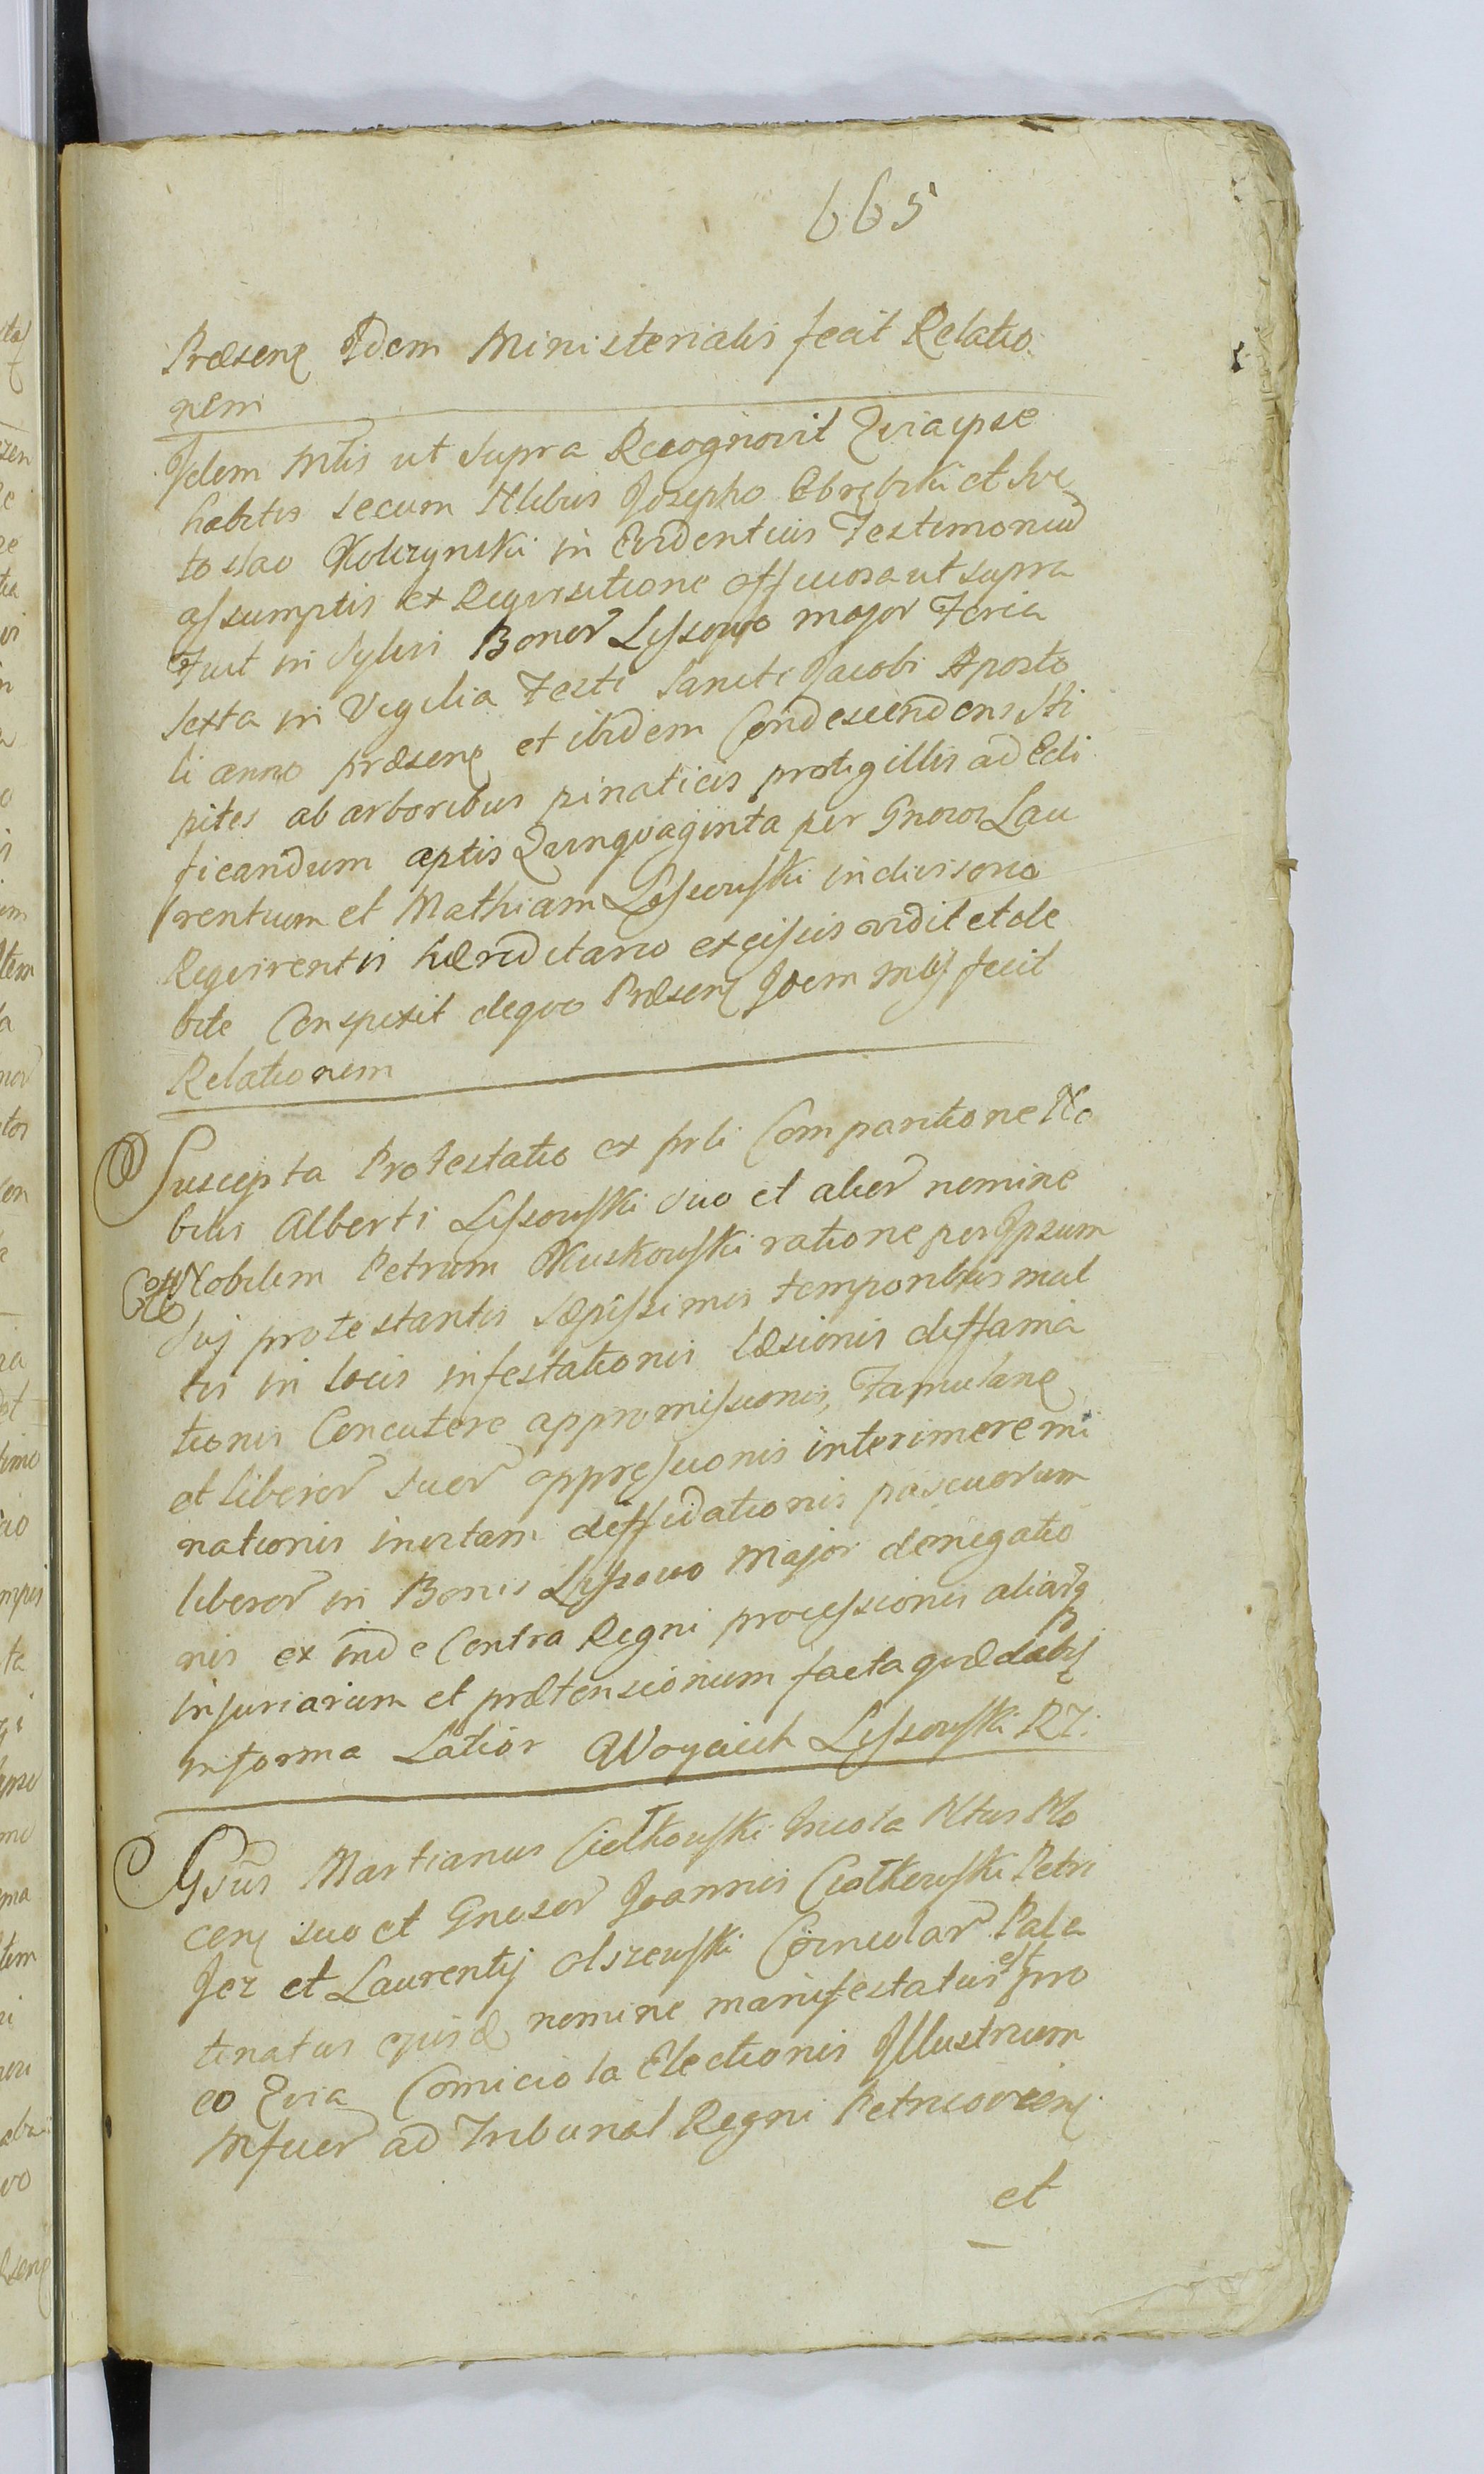 665
Præsenſ Idem Ministerialis fecit Relatio
nem
Idem Mtlis ut supra Recognovit Quia ipse
habitis secum Nlibus Josepho Obrębski et Sve
toslao Kolczynski in Evidentius Testimoniũ
aſsumptis ex Requisitione officiosa ut supra
Fuit in Sylvis Bonor Liſsowo major Feria
sexta in Vigilia Festi Sancti Jacobi Aposto
li anno præsenſ et ibidem Condescendens Sti
pites ab arboribus pinaticis pro tigillis ad Edi
ficandum aptis Quinquaginta per Gnosos Lau
rentium et Mathiam Liſsowſki in diviso
Requirentis hæreditario excisis vidit et de
bite Conspexit de quo Præsenſ Idem Mlis fecit
Relationem
Suscepta Protestatio ex prli Comparitione No
bilis Alberti Liſsowſki suo et alior nomine
Cttra Nobilem Petrum Kuskowſki ratione per Ipsum
Suj protestantis sæpiſsimis temporibus mul
tis in locis infestationis læsionis diffama
tionis Concutere appromiſsionis, Famulane
et liberor suor oppreſsionis interimere mi
nationis in vitam diffidationis pascuorum
liberor in Bonis Liſsowo Major denegatio
nis ex inde Contra Regni proceſsionis aliarq
injuriarum et prætensionum facta quæ dabiſ
in forma Latiôr Woyciech Liſsowſki RT:
Gsus Martianus Ciołkowſki Incola Ntus Plo
cenſ suo et Gnosor Joannis Ciołkowſki Petri
Jez et Laurentij Olszewſki Coincolar Pala
tinatus ejusd nomine manifestatus est pro
eo Quia Comicio la Electionis Illustrium
Mfcor ad Tribunal Regni Petricovienſ
et